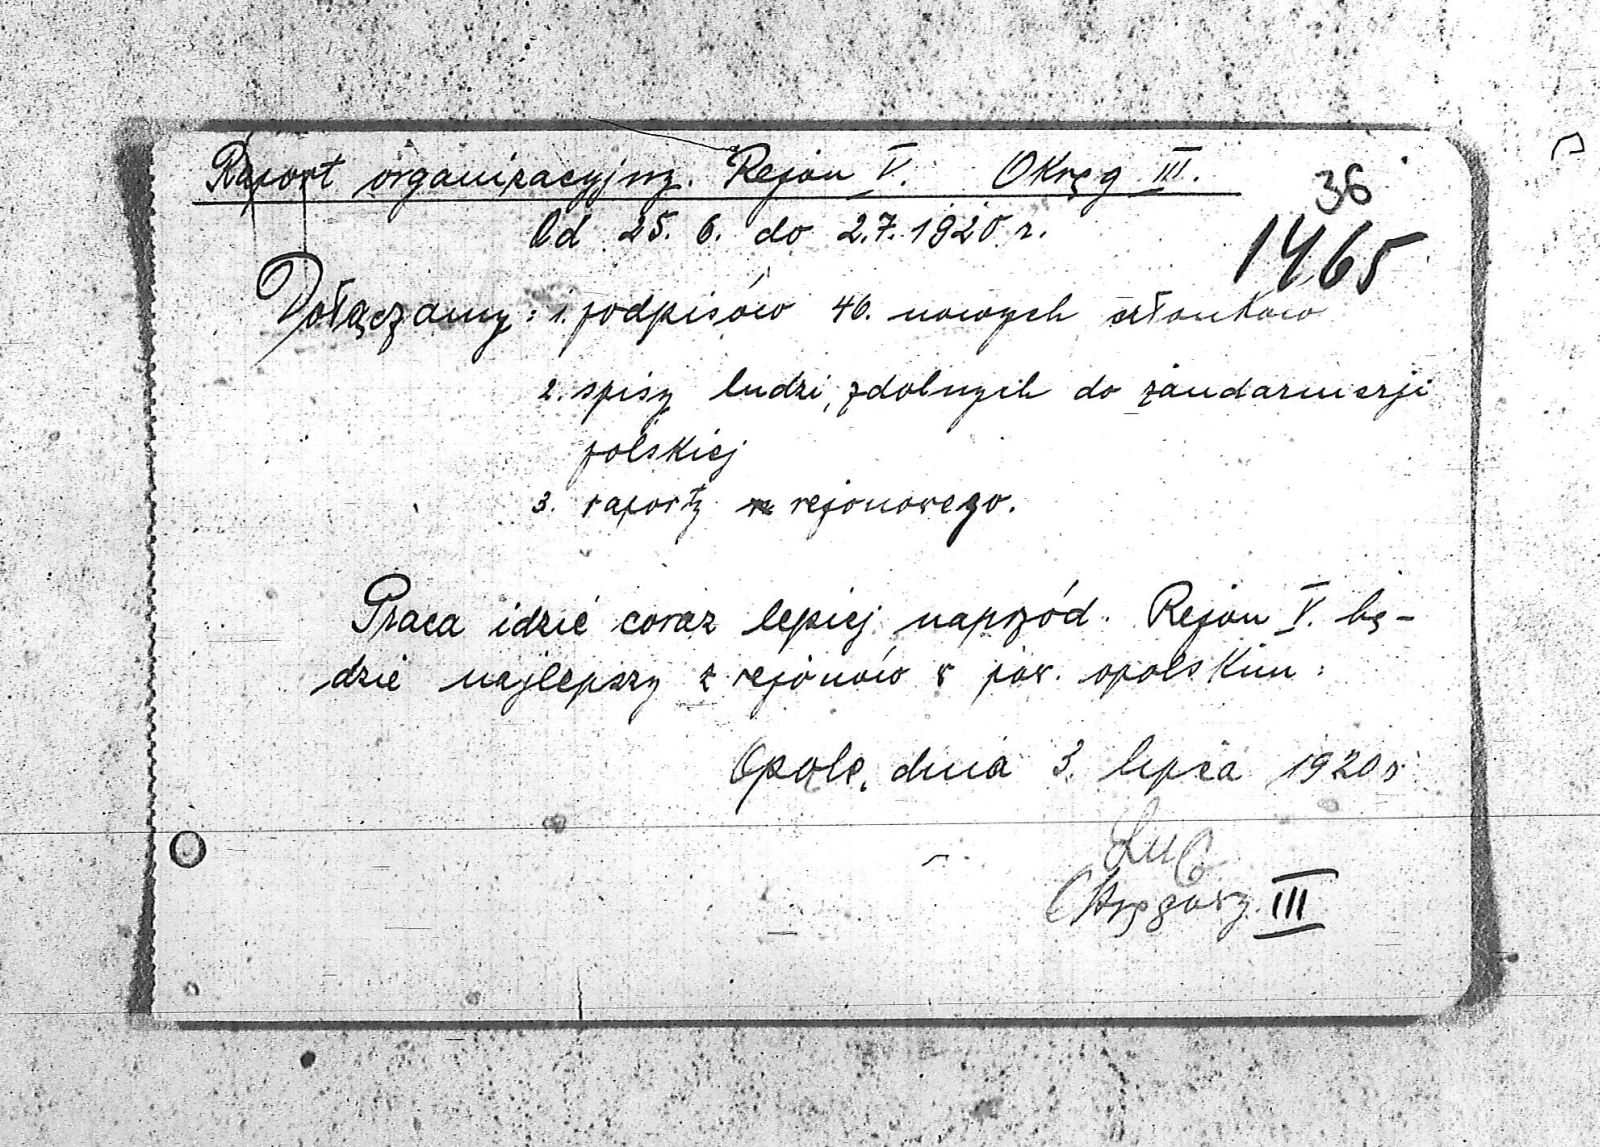 Raport organizacyjny. Rejon V. Okręg III.
36
Od 25. 6. do 2.7. 1920 r.
1465
Dołączamy: 1. podpisów 46. nowych członków
2. spisy ludzi, zdolnych do żandarmerji
polskiej
3. raporty rejonowego.
Praca idzie coraz lepiej naprzód. Rejon V. bę-
dzie najlepszy z rejonów w pow. opolskim.
Opole, dnia 3. lipca 1920 r
Okręgowy. III